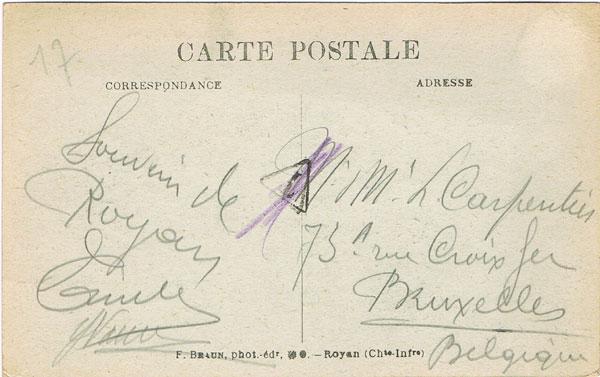 17
CARTE POSTALE
CORRESPONDANCE
ADRESSE
Souvenir de
Royan
Mr Mme L Carpentier
73A rue Croix fer
Bruxelles
Belgique
F. BRAUN, phot.-édr, — Royan (Chte-Infre)